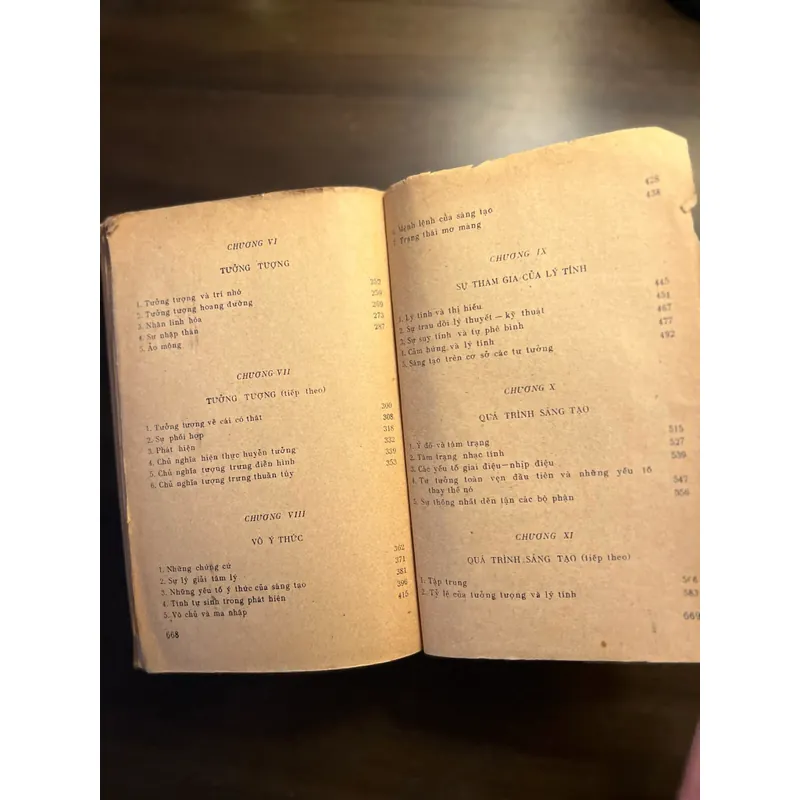 CHƯƠNG VI
TƯỞNG TƯỢNG
1. Tưởng tượng và trí nhớ 257
2. Tưởng tượng hoang đường 259
3. Nhân linh hóa 269
4. Sự nhập thân 273
5. Ảo mộng 287
CHƯƠNG VII
TƯỞNG TƯỢNG (tiếp theo)
1. Tưởng tượng về cái có thật 300
2. Sự phối hợp 308
3. Phát hiện 318
4. Chủ nghĩa hiện thực huyễn tưởng 332
5. Chủ nghĩa tượng trưng điển hình 339
6. Chủ nghĩa tượng trưng thuần túy 353
CHƯƠNG VIII
VÔ Ý THỨC
1. Những chứng cứ 362
2. Sự lý giải tâm lý 371
3. Những yếu tố ý thức của sáng tạo 381
4. Tính tự sinh trong phát hiện 396
5. Vô chủ và ma nhập 415
668
Mệnh lệnh của sáng tạo
Trạng thái mơ màng 438
CHƯƠNG IX
SỰ THAM GIA CỦA LÝ TÍNH
1. Lý tính và thị hiếu 445
2. Sự trau dồi lý thuyết – kỹ thuật 451
3. Sự suy tính và tự phê bình 467
4. Cảm hứng và lý tính 477
5. Sáng tạo trên cơ sở các tư tưởng 492
CHƯƠNG X
QUÁ TRÌNH SÁNG TẠO
1. Ý đồ và tâm trạng 515
2. Tâm trạng nhạc tính 527
3. Các yếu tố giai điệu – nhịp điệu 539
4. Tư tưởng toàn vẹn đầu tiên và những yếu tố
thay thế nó 547
5. Sự thống nhất đến tận các bộ phận 556
CHƯƠNG XI
QUÁ TRÌNH SÁNG TẠO (tiếp theo)
1. Tập trung
2. Tỷ lệ của tưởng tượng và lý tính 583
669